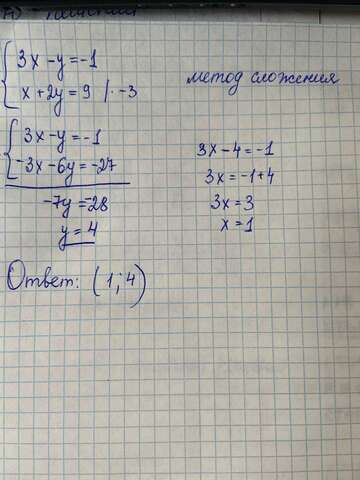 3x - y = -1
x + 2y = 9 / · -3
метод сложения
3x - y = -1
-3x - 6y = -27
-7y = -28
y = 4
3x - 4 = -1
3x = -1 + 4
3x = 3
x = 1
Ответ: (1; 4)